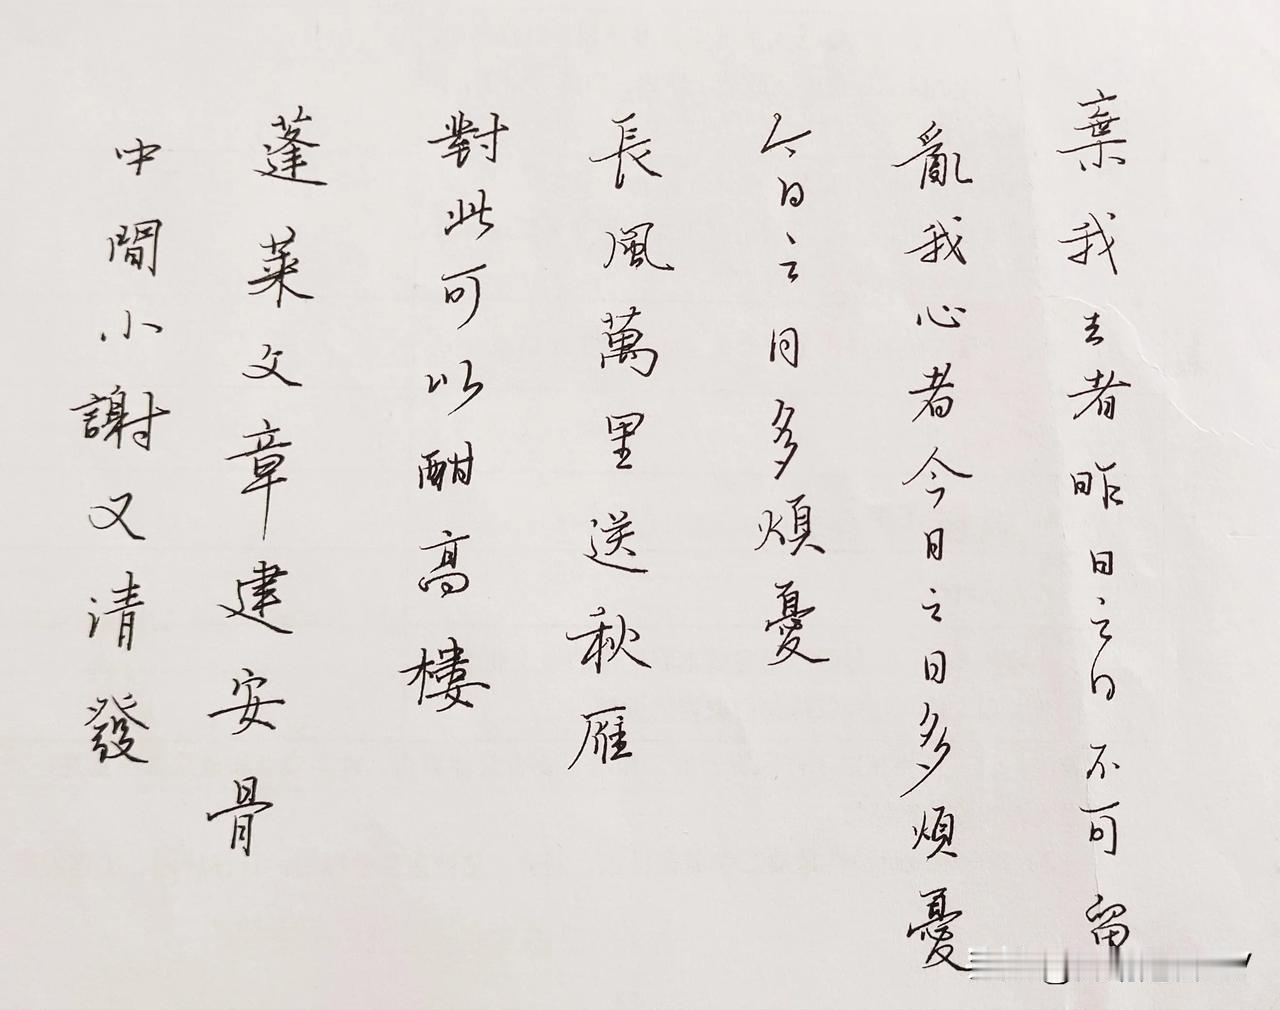 棄我去者昨日之日不可留
亂我心者今日之日多煩憂
今日之日多煩憂
長風萬里送秋雁
對此可以酣高樓
蓬萊文章建安骨
中間小謝又清發